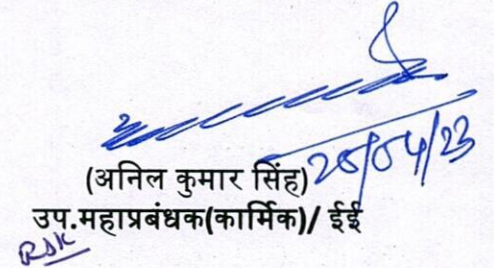 (अनिल कुमार सिंह) 25/04/23
उप.महाप्रबंधक(कार्मिक)/ ईई
RSK